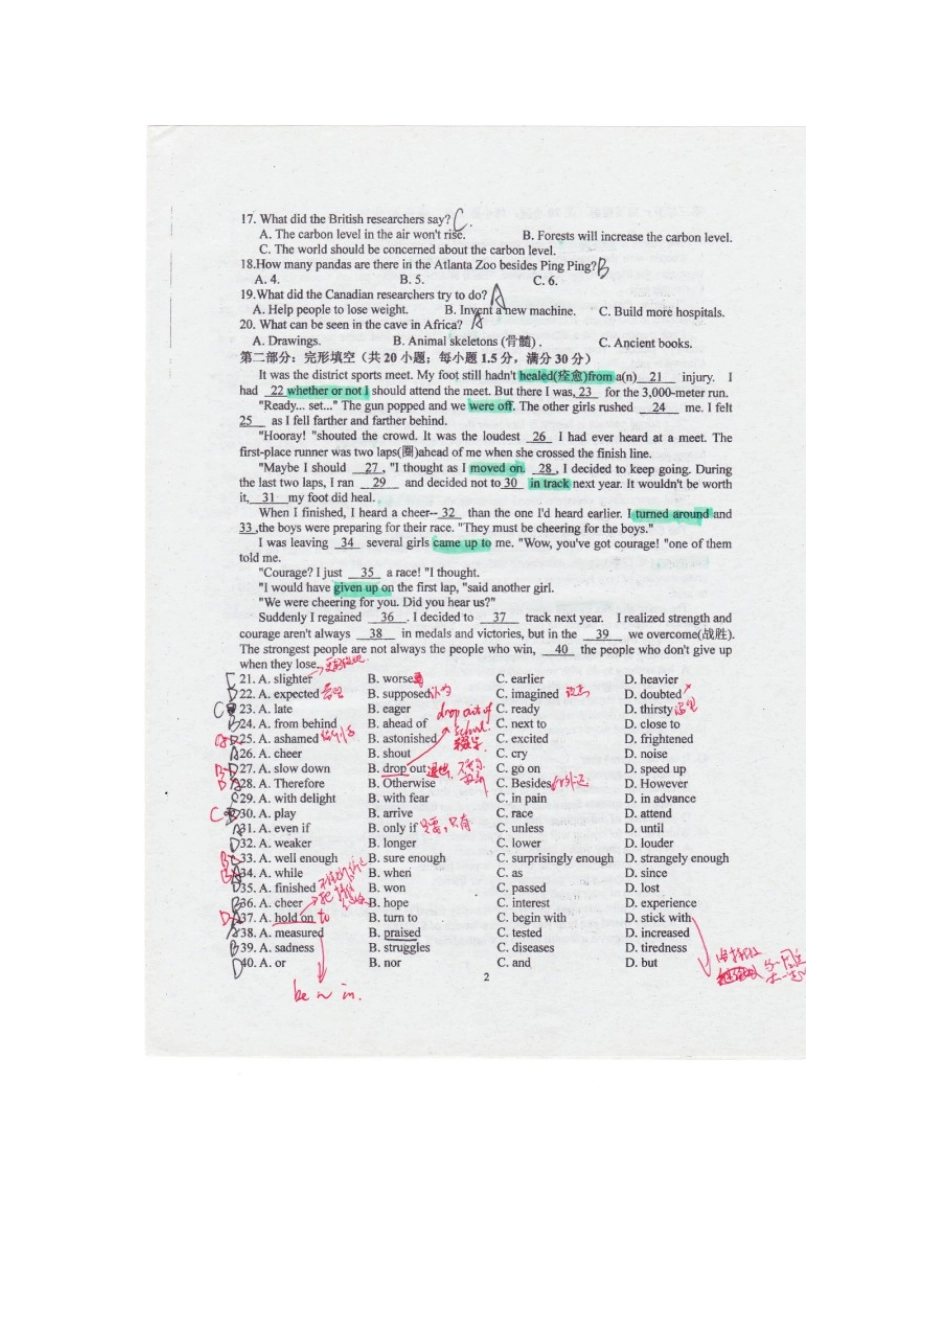 17. What did the British researchers say? C
A. The carbon level in the air won't rise. B. Forests will increase the carbon level.
C. The world should be concerned about the carbon level.
18.How many pandas are there in the Atlanta Zoo besides Ping Ping? B
A. 4. B. 5. C. 6.
19.What did the Canadian researchers try to do? A
A. Help people to lose weight. B. Invent a new machine. C. Build more hospitals.
20. What can be seen in the cave in Africa? A
A. Drawings. B. Animal skeletons (骨髓) . C. Ancient books.
第二部分：完形填空（共 20 小题；每小题 1.5 分，满分 30 分）
It was the district sports meet. My foot still hadn't healed(痊愈)from a(n) 21 injury. I
had 22 whether or not I should attend the meet. But there I was, 23 for the 3,000-meter run.
"Ready... set..." The gun popped and we were off. The other girls rushed 24 me. I felt
25 as I fell farther and farther behind.
"Hooray! "shouted the crowd. It was the loudest 26 I had ever heard at a meet. The
first-place runner was two laps(圈)ahead of me when she crossed the finish line.
"Maybe I should 27 , "I thought as I moved on. 28 , I decided to keep going. During
the last two laps, I ran 29 and decided not to 30 in track next year. It wouldn't be worth
it, 31 my foot did heal.
When I finished, I heard a cheer-- 32 than the one I'd heard earlier. I turned around and
33 ,the boys were preparing for their race. "They must be cheering for the boys."
I was leaving 34 several girls came up to me. "Wow, you've got courage! "one of them
told me.
"Courage? I just 35 a race! "I thought.
"I would have given up on the first lap, "said another girl.
"We were cheering for you. Did you hear us?"
Suddenly I regained 36 . I decided to 37 track next year. I realized strength and
courage aren't always 38 in medals and victories, but in the 39 we overcome(战胜).
The strongest people are not always the people who win, 40 the people who don't give up
when they lose.
21. A. slighter B. worse C. earlier D. heavier
D 22. A. expected B. supposed 认为 C. imagined D. doubted
C 23. A. late B. eager C. ready D. thirsty
B 24. A. from behind B. ahead of C. next to D. close to
drop out of school.
25. A. ashamed B. astonished C. excited D. frightened
A 26. A. cheer B. shout C. cry D. noise
B 27. A. slow down B. drop out 退出 C. go on D. speed up
28. A. Therefore B. Otherwise C. Besides D. However
29. A. with delight B. with fear C. in pain D. in advance
C 30. A. play B. arrive C. race D. attend
A 31. A. even if B. only if 只要，只有 C. unless D. until
D 32. A. weaker B. longer C. lower D. louder
33. A. well enough B. sure enough C. surprisingly enough D. strangely enough
34. A. while B. when C. as D. since
D 35. A. finished B. won C. passed D. lost
B 36. A. cheer B. hope C. interest D. experience
D 37. A. hold on to B. turn to C. begin with D. stick with
A 38. A. measured B. praised C. tested D. increased
B 39. A. sadness B. struggles C. diseases D. tiredness
D 40. A. or B. nor C. and D. but
2
be ~ in.